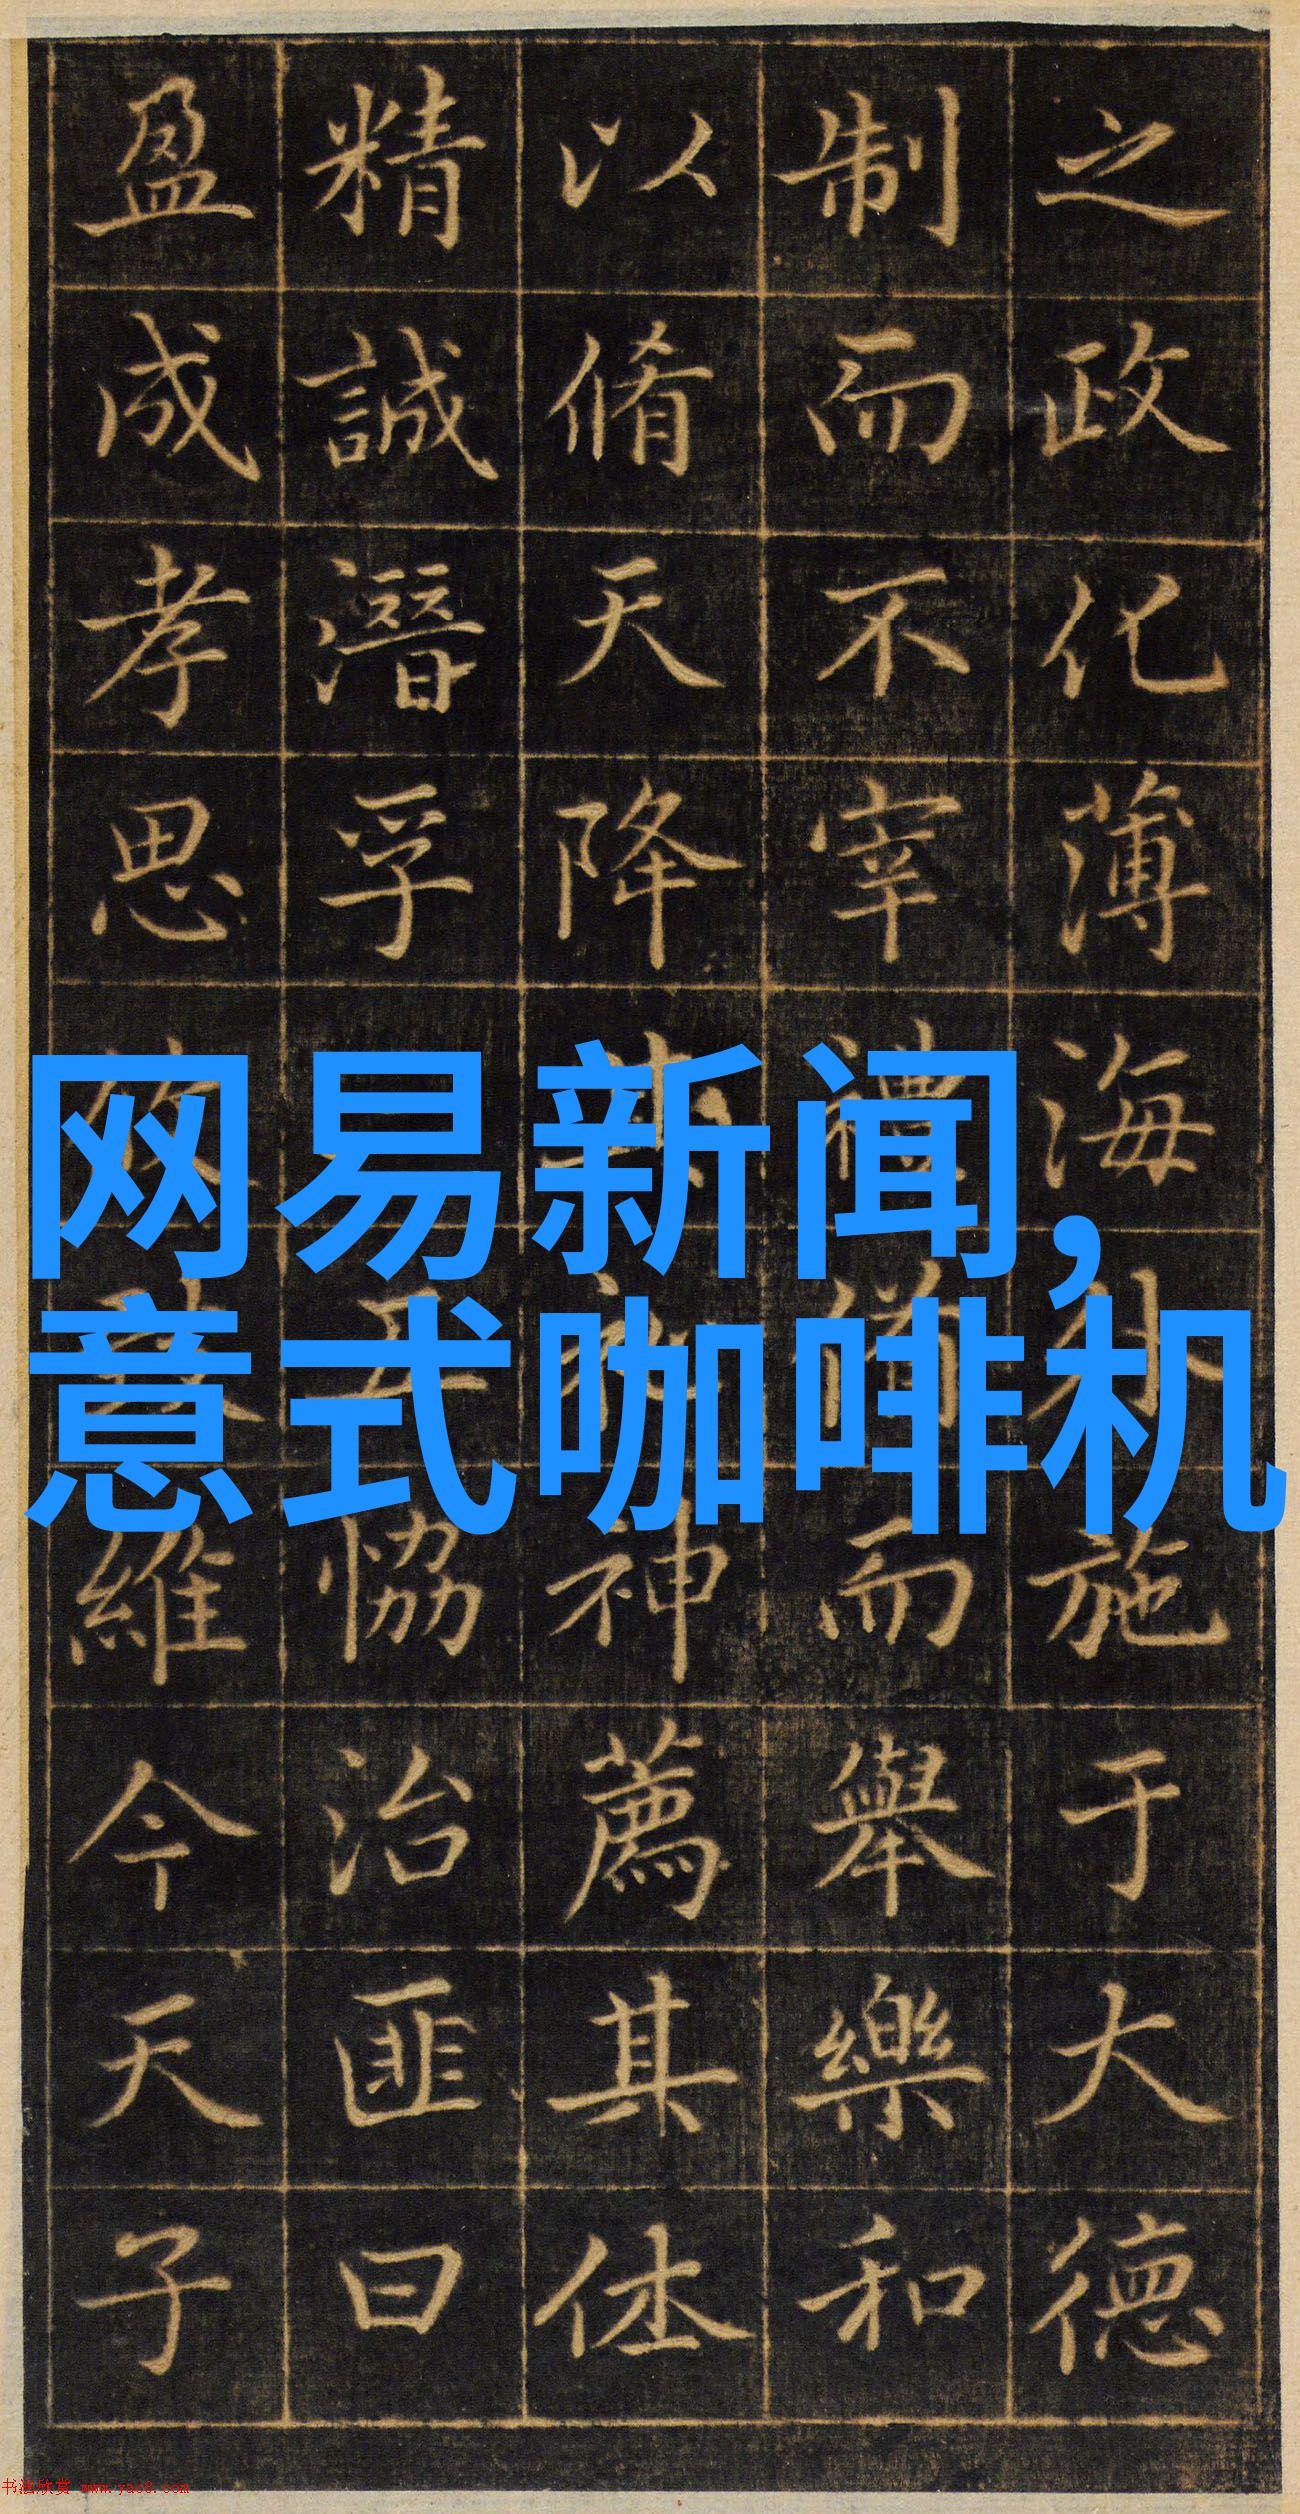 之政化薄海外施于大德
制而不宰禮備而舉樂和
以脩天降神薦其
精誠潛孚恊治匪曰
盈成孝思維今天子
网易新闻,
意式咖啡机
书法欣赏 www.yac8.com